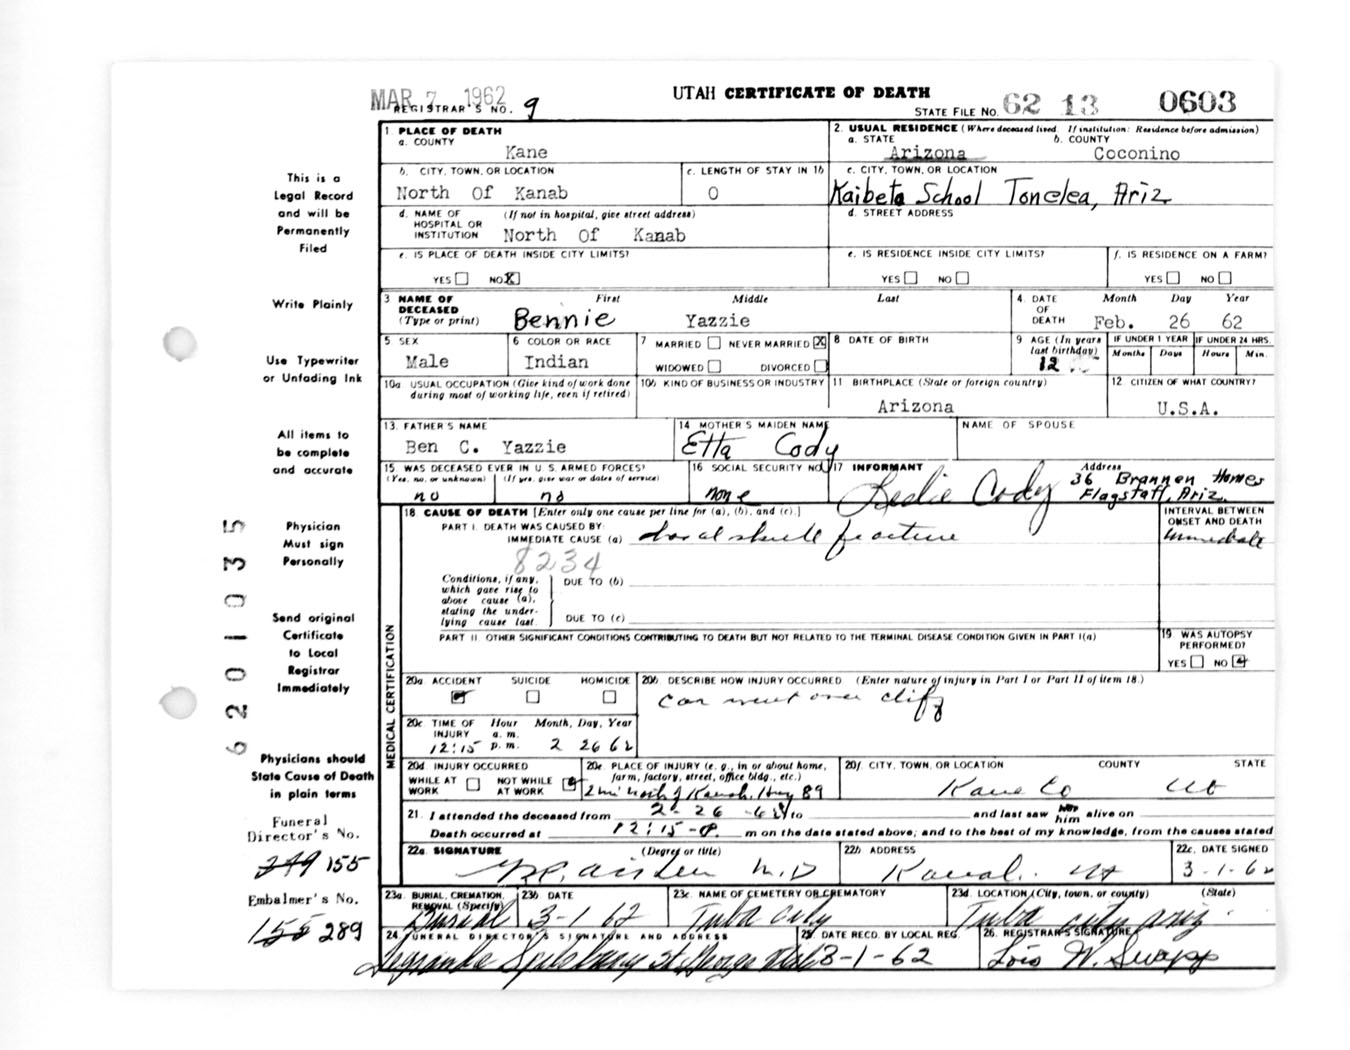 MAR 7 1962
UTAH CERTIFICATE OF DEATH
REGISTRAR'S NO. 9
STATE FILE NO. 62 13 0603
This is a
Legal Record
and will be
Permanently
Filed
Write Plainly
Use Typewriter
or Unfading Ink
All items to
be complete
and accurate
Physician
Must sign
Personally
Send original
Certificate
to Local
Registrar
Immediately
Physicians should
State Cause of Death
in plain terms
Funeral
Director's No.
249 155
Embalmer's No.
155 289
6201035
1. PLACE OF DEATH
a. COUNTY
Kane
2. USUAL RESIDENCE (Where deceased lived. If institution: Residence before admission)
a. STATE b. COUNTY
Arizona Coconino
b. CITY, TOWN, OR LOCATION
North Of Kanab
c. LENGTH OF STAY IN 1b
0
c. CITY, TOWN, OR LOCATION
Kaibeta School Tonelea, Ariz
d. NAME OF HOSPITAL OR INSTITUTION (If not in hospital, give street address)
North Of Kanab
d. STREET ADDRESS
e. IS PLACE OF DEATH INSIDE CITY LIMITS?
YES NO X
e. IS RESIDENCE INSIDE CITY LIMITS?
YES NO
f. IS RESIDENCE ON A FARM?
YES NO
3 NAME OF DECEASED (Type or print) First Middle Last
Bennie Yazzie
4. DATE OF DEATH Month Day Year
Feb. 26 62
5 SEX
Male
6 COLOR OR RACE
Indian
7 MARRIED NEVER MARRIED X
WIDOWED DIVORCED
8 DATE OF BIRTH
9 AGE (In years last birthday)
12
IF UNDER 1 YEAR
Months Days
IF UNDER 24 HRS.
Hours Min.
10a USUAL OCCUPATION (Give kind of work done during most of working life, even if retired)
10b KIND OF BUSINESS OR INDUSTRY
11 BIRTHPLACE (State or foreign country)
Arizona
12 CITIZEN OF WHAT COUNTRY?
U.S.A.
13. FATHER'S NAME
Ben C. Yazzie
14 MOTHER'S MAIDEN NAME
Etta Cody
NAME OF SPOUSE
15 WAS DECEASED EVER IN U. S. ARMED FORCES?
(Yes, no, or unknown) (If yes, give war or dates of service)
no no
16 SOCIAL SECURITY NO.
none
17 INFORMANT Address
Leslie Cody 36 Brannen Homes
Flagstaff, Ariz.
MEDICAL CERTIFICATION
18. CAUSE OF DEATH [Enter only one cause per line for (a), (b), and (c).]
PART I. DEATH WAS CAUSED BY:
IMMEDIATE CAUSE (a) skull fracture
INTERVAL BETWEEN ONSET AND DEATH
immediate
8234
Conditions, if any, which gave rise to above cause (a), stating the underlying cause last.
DUE TO (b)
DUE TO (c)
PART II. OTHER SIGNIFICANT CONDITIONS CONTRIBUTING TO DEATH BUT NOT RELATED TO THE TERMINAL DISEASE CONDITION GIVEN IN PART I(a)
19 WAS AUTOPSY PERFORMED?
YES NO
20a. ACCIDENT SUICIDE HOMICIDE
20b. DESCRIBE HOW INJURY OCCURRED. (Enter nature of injury in Part I or Part II of item 18.)
car went over cliff
20c TIME OF INJURY Hour a. m. p. m. Month, Day, Year
12:15 2 26 62
20d. INJURY OCCURRED
WHILE AT WORK NOT WHILE AT WORK
20e. PLACE OF INJURY (e. g., in or about home, farm, factory, street, office bldg., etc.)
2 mi north of Kanab, Hwy 89
20f. CITY, TOWN, OR LOCATION COUNTY STATE
Kane Co Ut
21. I attended the deceased from 2-26-62 to and last saw her him alive on
Death occurred at 12:15 P. m on the date stated above; and to the best of my knowledge, from the causes stated
22a. SIGNATURE (Degree or title)
M.D
22b. ADDRESS
Kanab. Ut
22c. DATE SIGNED
3-1-62
23a. BURIAL, CREMATION, REMOVAL (Specify)
Burial
23b. DATE
3-1-62
23c. NAME OF CEMETERY OR CREMATORY
Tuba City
23d. LOCATION (City, town, or county) (State)
Tuba City Ariz.
24. FUNERAL DIRECTOR'S SIGNATURE AND ADDRESS
Legrande Spilsbury St. George Utah
25 DATE RECD. BY LOCAL REG.
3-1-62
26. REGISTRAR'S SIGNATURE
Lois W. Swapp